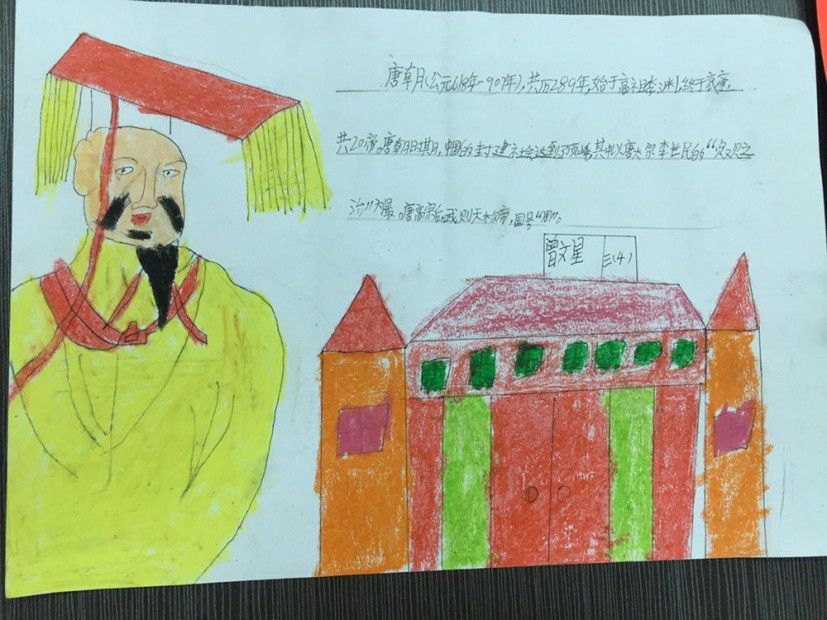 唐朝(公元618年-907年),共历289年,始于高祖李渊,终于哀帝
共20帝。唐朝时期,中国的封建社会达到了顶峰,其中以唐太宗李世民的“贞观之
治”为最。唐高宗后武则天称帝,国号“周”。
曾文星 三(4)